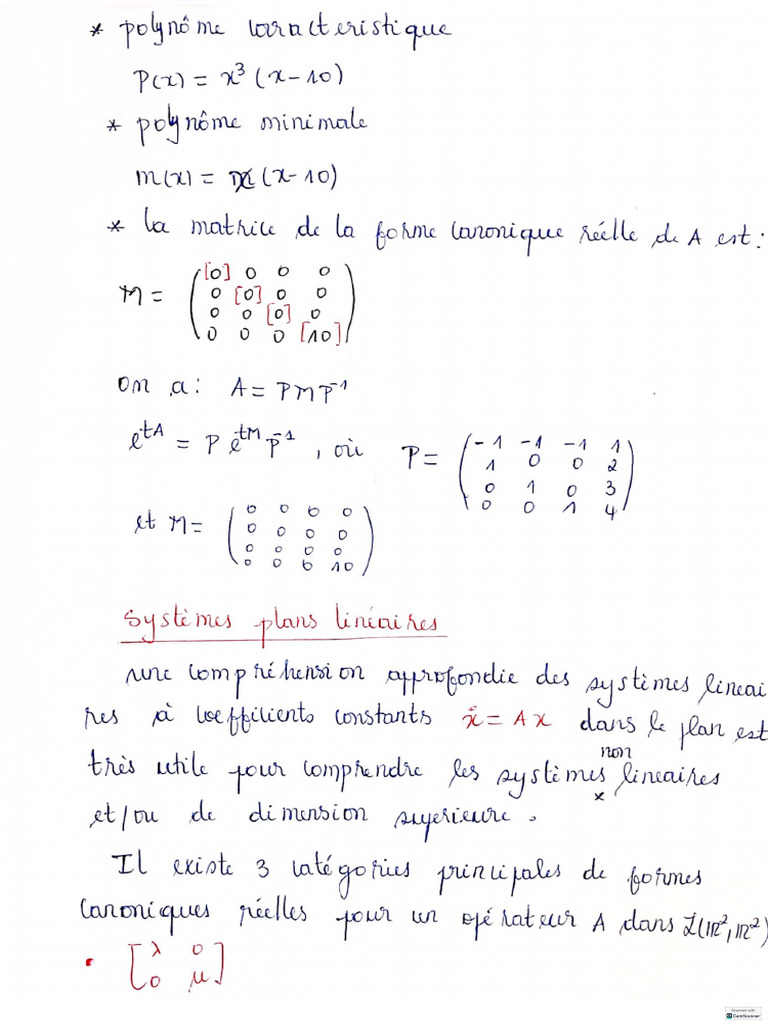 * polynôme caracteristique
P(x) = x³ (x-10)
* polynôme minimale
m(x) = x (x-10)
* la matrice de la forme canonique réelle de A est:
M = ([0] 0 0 0
0 [0] 0 0
0 0 [0] 0
0 0 0 [10])
On a: A = PMP⁻¹
e^{tA} = P e^{tM} P⁻¹, où P = (-1 -1 -1 1
1 0 0 2
0 1 0 3
0 0 1 4)
et M = (0 0 0 0
0 0 0 0
0 0 0 0
0 0 0 10)
Systèmes plans linéaires
une compréhension approfondie des systèmes lineai
res à coefficients constants ẋ = Ax dans le plan est
très utile pour comprendre les systèmes non lineaires
et/ou de dimension superieure.
Il existe 3 catégories principales de formes
canoniques réelles pour un opérateur A dans L(ℝ²,ℝ²)
• [λ 0
0 μ]
Scanned with
CamScanner